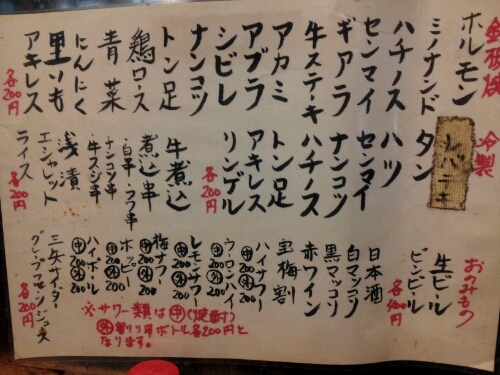 ホルモン
ミノナンド
ハチノス
センマイ
ギアラ
牛ステーキ
アカミ
アブラ
シビレ
ナンコツ
トン足
鶏ロース
青菜
にんにく
里いも
アキレス
各200円
冷製
タン
レバテキ
ハツ
センマイ
ナンコツ
ハチノス
トン足
アキレス
リンゲル
各200円
牛煮込
煮込串
・白串・フワ串
・ナンコツ串
・牛スジ串
浅漬
エシャレット
ライス
各200円
おのみもの
生ビール
ビンビール
各400円
日本酒
白マッコリ
黒マッコリ
赤ワイン
宝梅割
ハイサワー
中200
外200
ウーロンハイ
中200
外200
レモンサワー
中200
外200
梅サワー
中200
外200
ホッピー
中200
外200
ハイボール
中200
外200
三矢サイダー
グレープフルーツジュース
各200円
※サワー類は中(焼酎)
外割り用ボトル各200円と
なります。